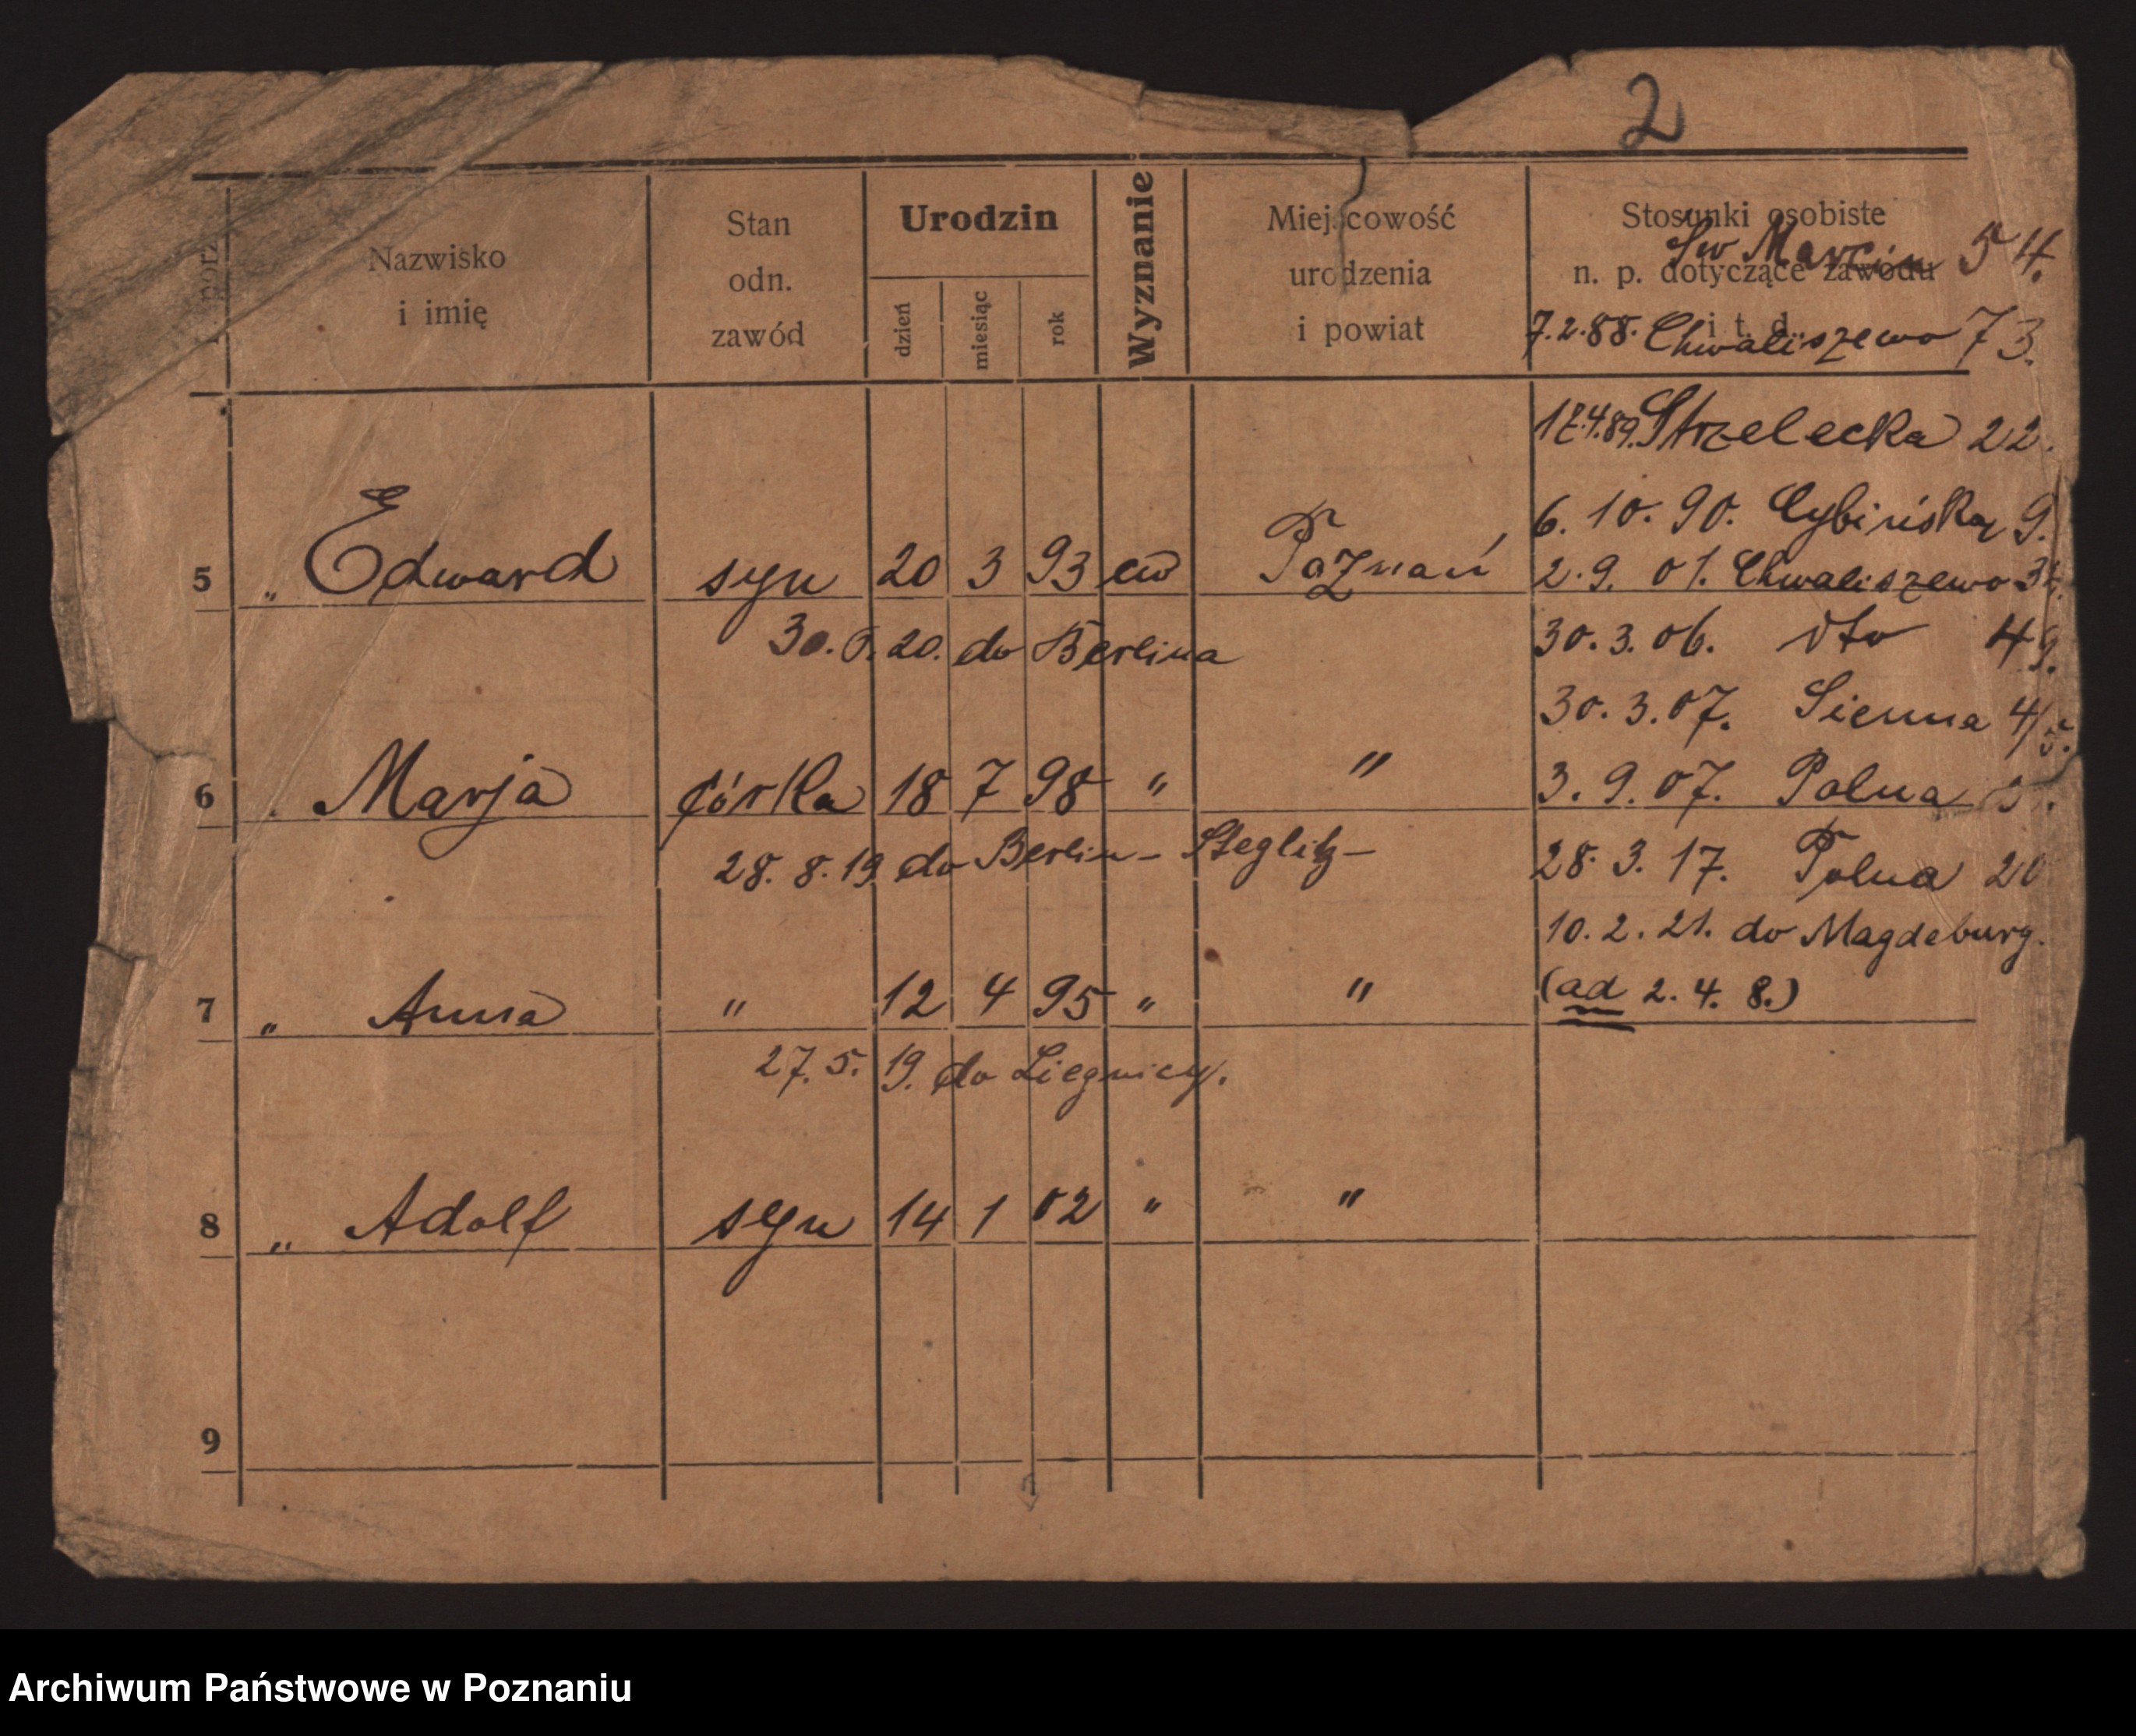 2
Nazwisko
i imię
Stan
odn.
zawód
Urodzin
dzień
miesiąc
rok
Wyznanie
Miejscowość
urodzenia
i powiat
Stosunki osobiste
n. p. dotyczące zawodu
i t. d.
Św Marcin 54.
7.2.88. Chwaliszewo 73.
Strzelecka 22.
6. 10. 90. Cybińska 9.
5 „ Edward syn 20 3 93 ew Poznań 2.9. 01. Chwaliszewo
30. 20. do Berlina
30.3.06. dto 49.
30.3.07. Sienna 4/5.
6 Marja córka 18 7 98 " " 3.9.07. Polna
28. 8. 19 do Berlin-Steglitz-
28. 3. 17. Polna 20
10. 2. 21. do Magdeburg.
(ad 2. 4. 8.)
7 „ Anna " 12 4 95 " "
27. 5. 19. do Liegnicy.
8 „ Adolf syn 14 1 02 " "
9
Archiwum Państwowe w Poznaniu